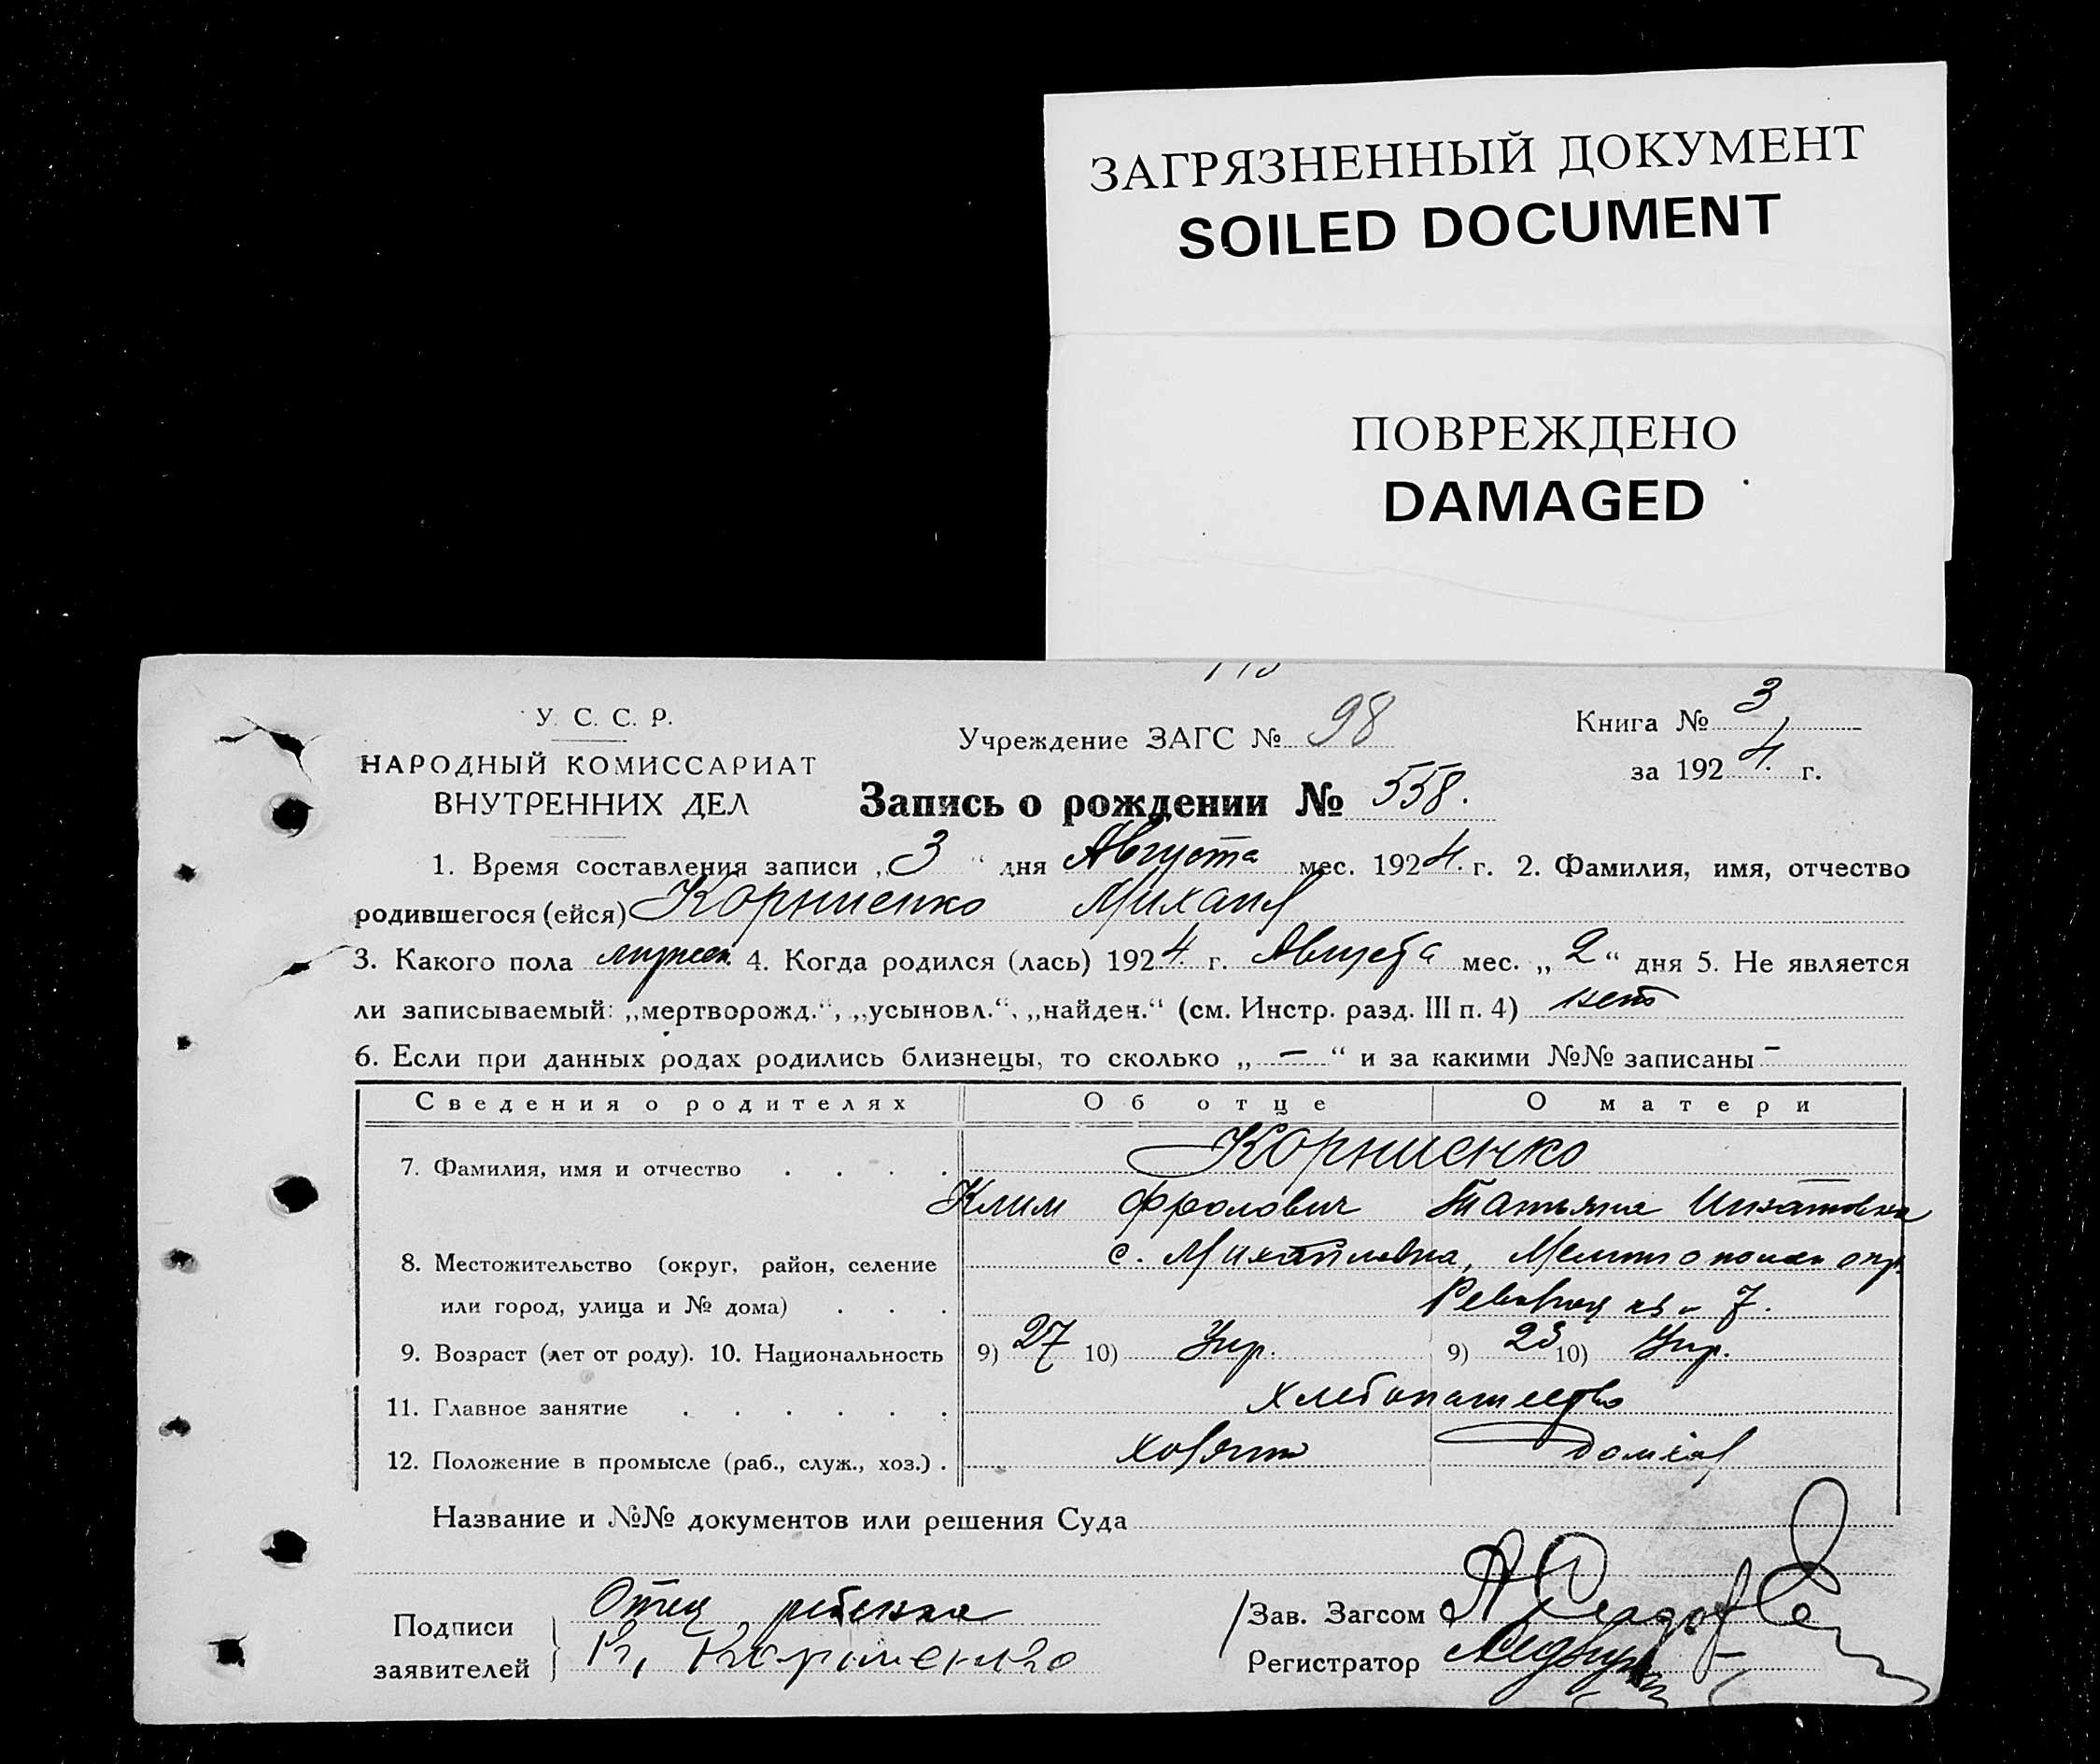 ЗАГРЯЗНЕННЫЙ ДОКУМЕНТ
SOILED DOCUMENT
ПОВРЕЖДЕНО
DAMAGED
У. С. С. Р.
НАРОДНЫЙ КОМИССАРИАТ
ВНУТРЕННИХ ДЕЛ
Учреждение ЗАГС № 98
Книга № 3
за 1924 г.
Запись о рождении № 558.
1. Время составления записи „3“ дня Августа мес. 1924. г. 2. Фамилия, имя, отчество
родившегося (ейся) Корниенко Михаил
3. Какого пола мужск. 4. Когда родился (лась) 1924 г. Августа мес. „2“ дня 5. Не является
ли записываемый: „мертворожд.“, „усыновл.“, „найден.“ (см. Инстр. разд. III п. 4) нет
6. Если при данных родах родились близнецы, то сколько „ — “ и за какими №№ записаны —
Сведения о родителях Об отце О матери
7. Фамилия, имя и отчество . . . . Корниенко
Клим Фролович Татьяна Игнатовна
8. Местожительство (округ, район, селение с. Михайловка, Мелитопольск окр.
или город, улица и № дома) . . . 7.
9. Возраст (лет от роду). 10. Национальность 9) 27 10) Укр. 9) 23 10) Укр.
11. Главное занятие . . . . . . хлебопашество
12. Положение в промысле (раб., служ., хоз.) . хозяин домхоз
Название и №№ документов или решения Суда
Подписи заявителей
Отец ребенка
К. Корниенко
Зав. Загсом
Регистратор